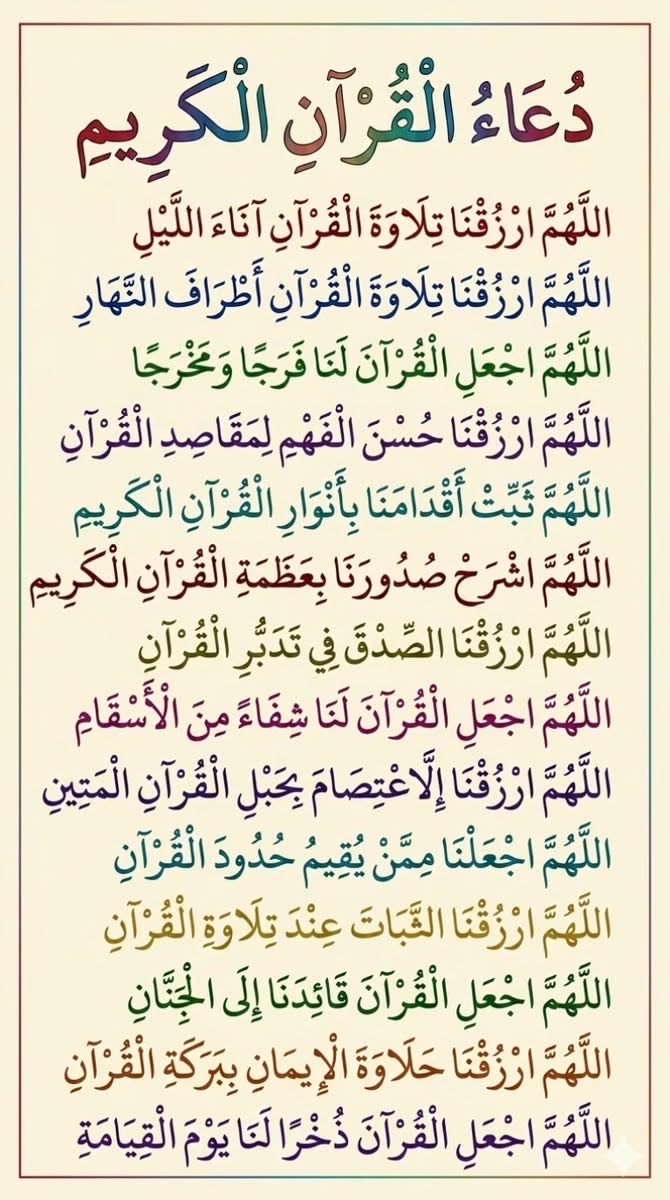 دُعَاءُ الْقُرْآنِ الْكَرِيمِ
اللَّهُمَّ ارْزُقْنَا تِلَاوَةَ الْقُرْآنِ آنَاءَ اللَّيْلِ
اللَّهُمَّ ارْزُقْنَا تِلَاوَةَ الْقُرْآنِ أَطْرَافَ النَّهَارِ
اللَّهُمَّ اجْعَلِ الْقُرْآنَ لَنَا فَرَجًا وَمَخْرَجًا
اللَّهُمَّ ارْزُقْنَا حُسْنَ الْفَهْمِ لِمَقَاصِدِ الْقُرْآنِ
اللَّهُمَّ ثَبِّتْ أَقْدَامَنَا بِأَنْوَارِ الْقُرْآنِ الْكَرِيمِ
اللَّهُمَّ اشْرَحْ صُدُورَنَا بِعَظَمَةِ الْقُرْآنِ الْكَرِيمِ
اللَّهُمَّ ارْزُقْنَا الصِّدْقَ فِي تَدَبُّرِ الْقُرْآنِ
اللَّهُمَّ اجْعَلِ الْقُرْآنَ لَنَا شِفَاءً مِنَ الْأَسْقَامِ
اللَّهُمَّ ارْزُقْنَا إِلَّاعْتِصَامَ بِحَبْلِ الْقُرْآنِ الْمَتِينِ
اللَّهُمَّ اجْعَلْنَا مِمَّنْ يُقِيمُ حُدُودَ الْقُرْآنِ
اللَّهُمَّ ارْزُقْنَا الثَّبَاتَ عِنْدَ تِلَاوَةِ الْقُرْآنِ
اللَّهُمَّ اجْعَلِ الْقُرْآنَ قَائِدَنَا إِلَى الْجِنَّانِ
اللَّهُمَّ ارْزُقْنَا حَلَاوَةَ الْإِيمَانِ بِبَرَكَةِ الْقُرْآنِ
اللَّهُمَّ اجْعَلِ الْقُرْآنَ ذُخْرًا لَنَا يَوْمَ الْقِيَامَةِ